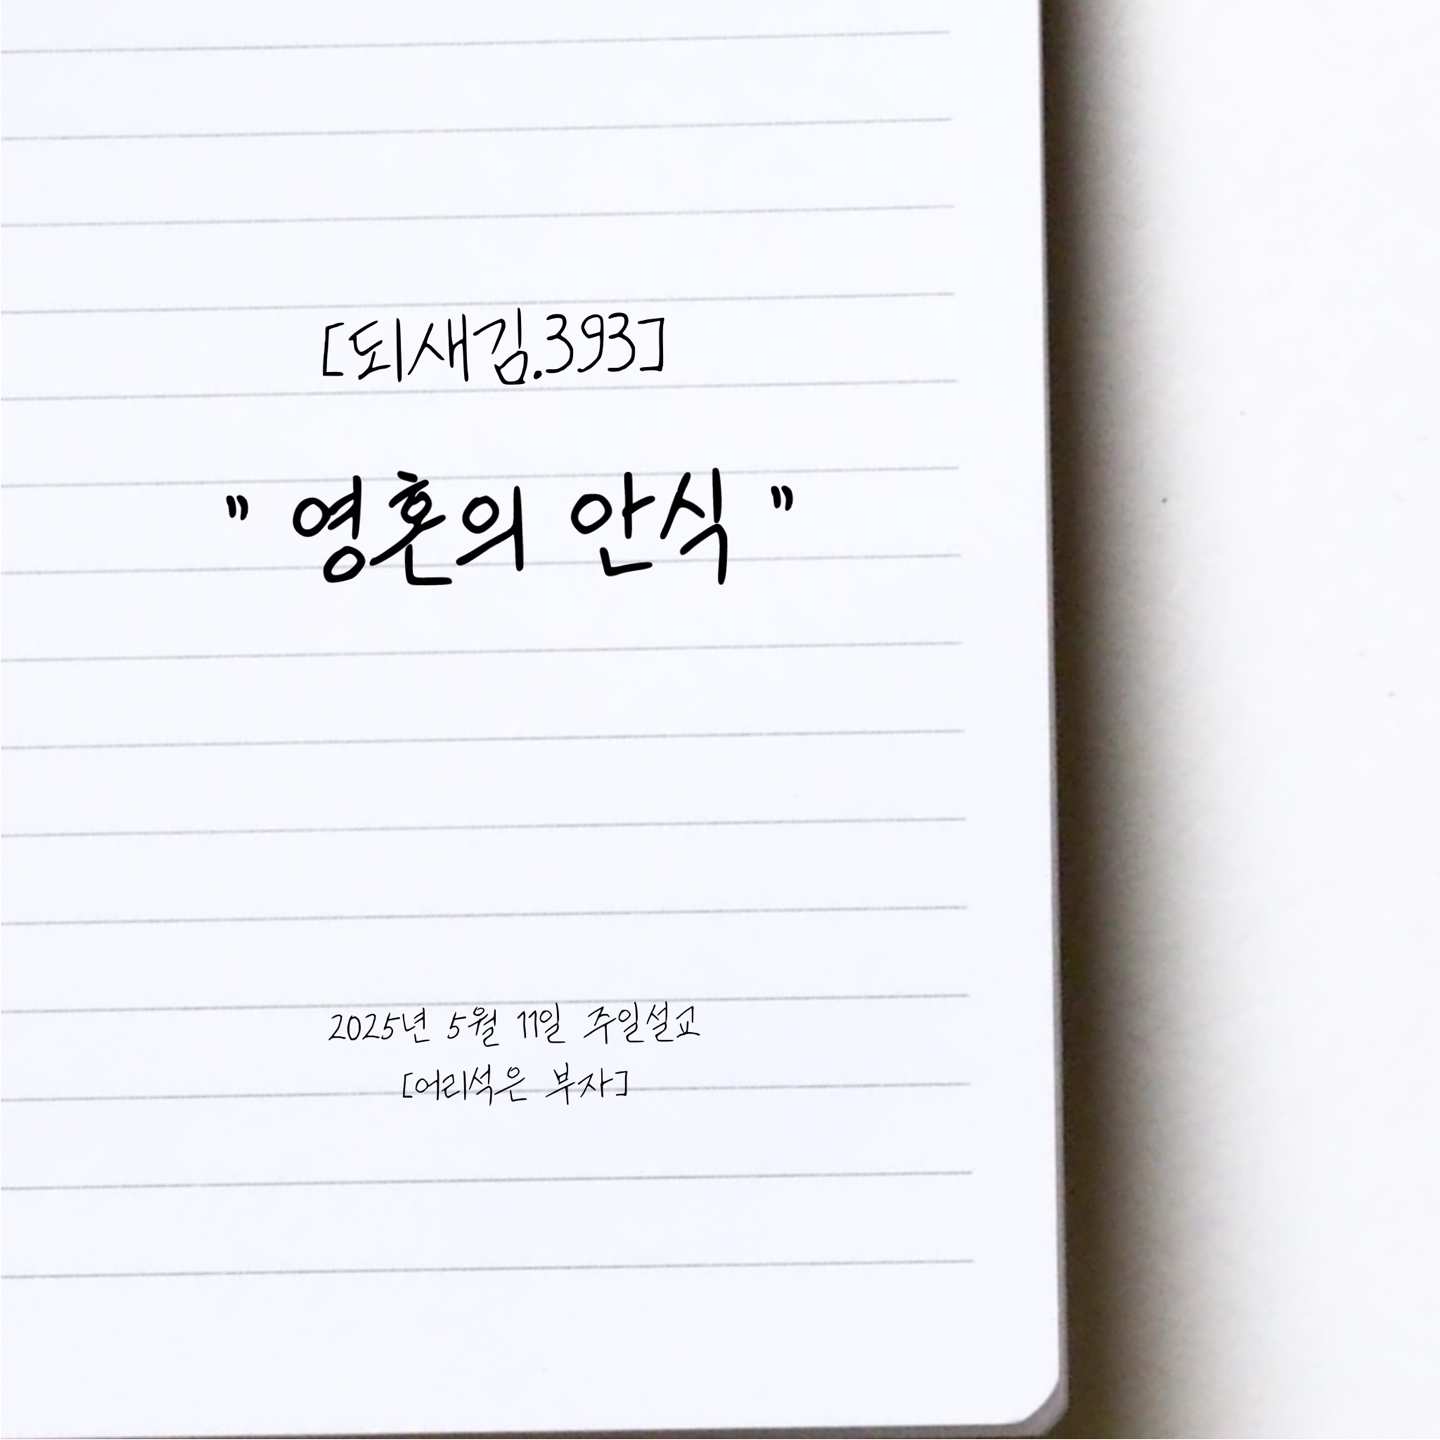 [되새김.393]
" 영혼의 안식 "
2025년 5월 11일 주일설교
[어리석은 부자]